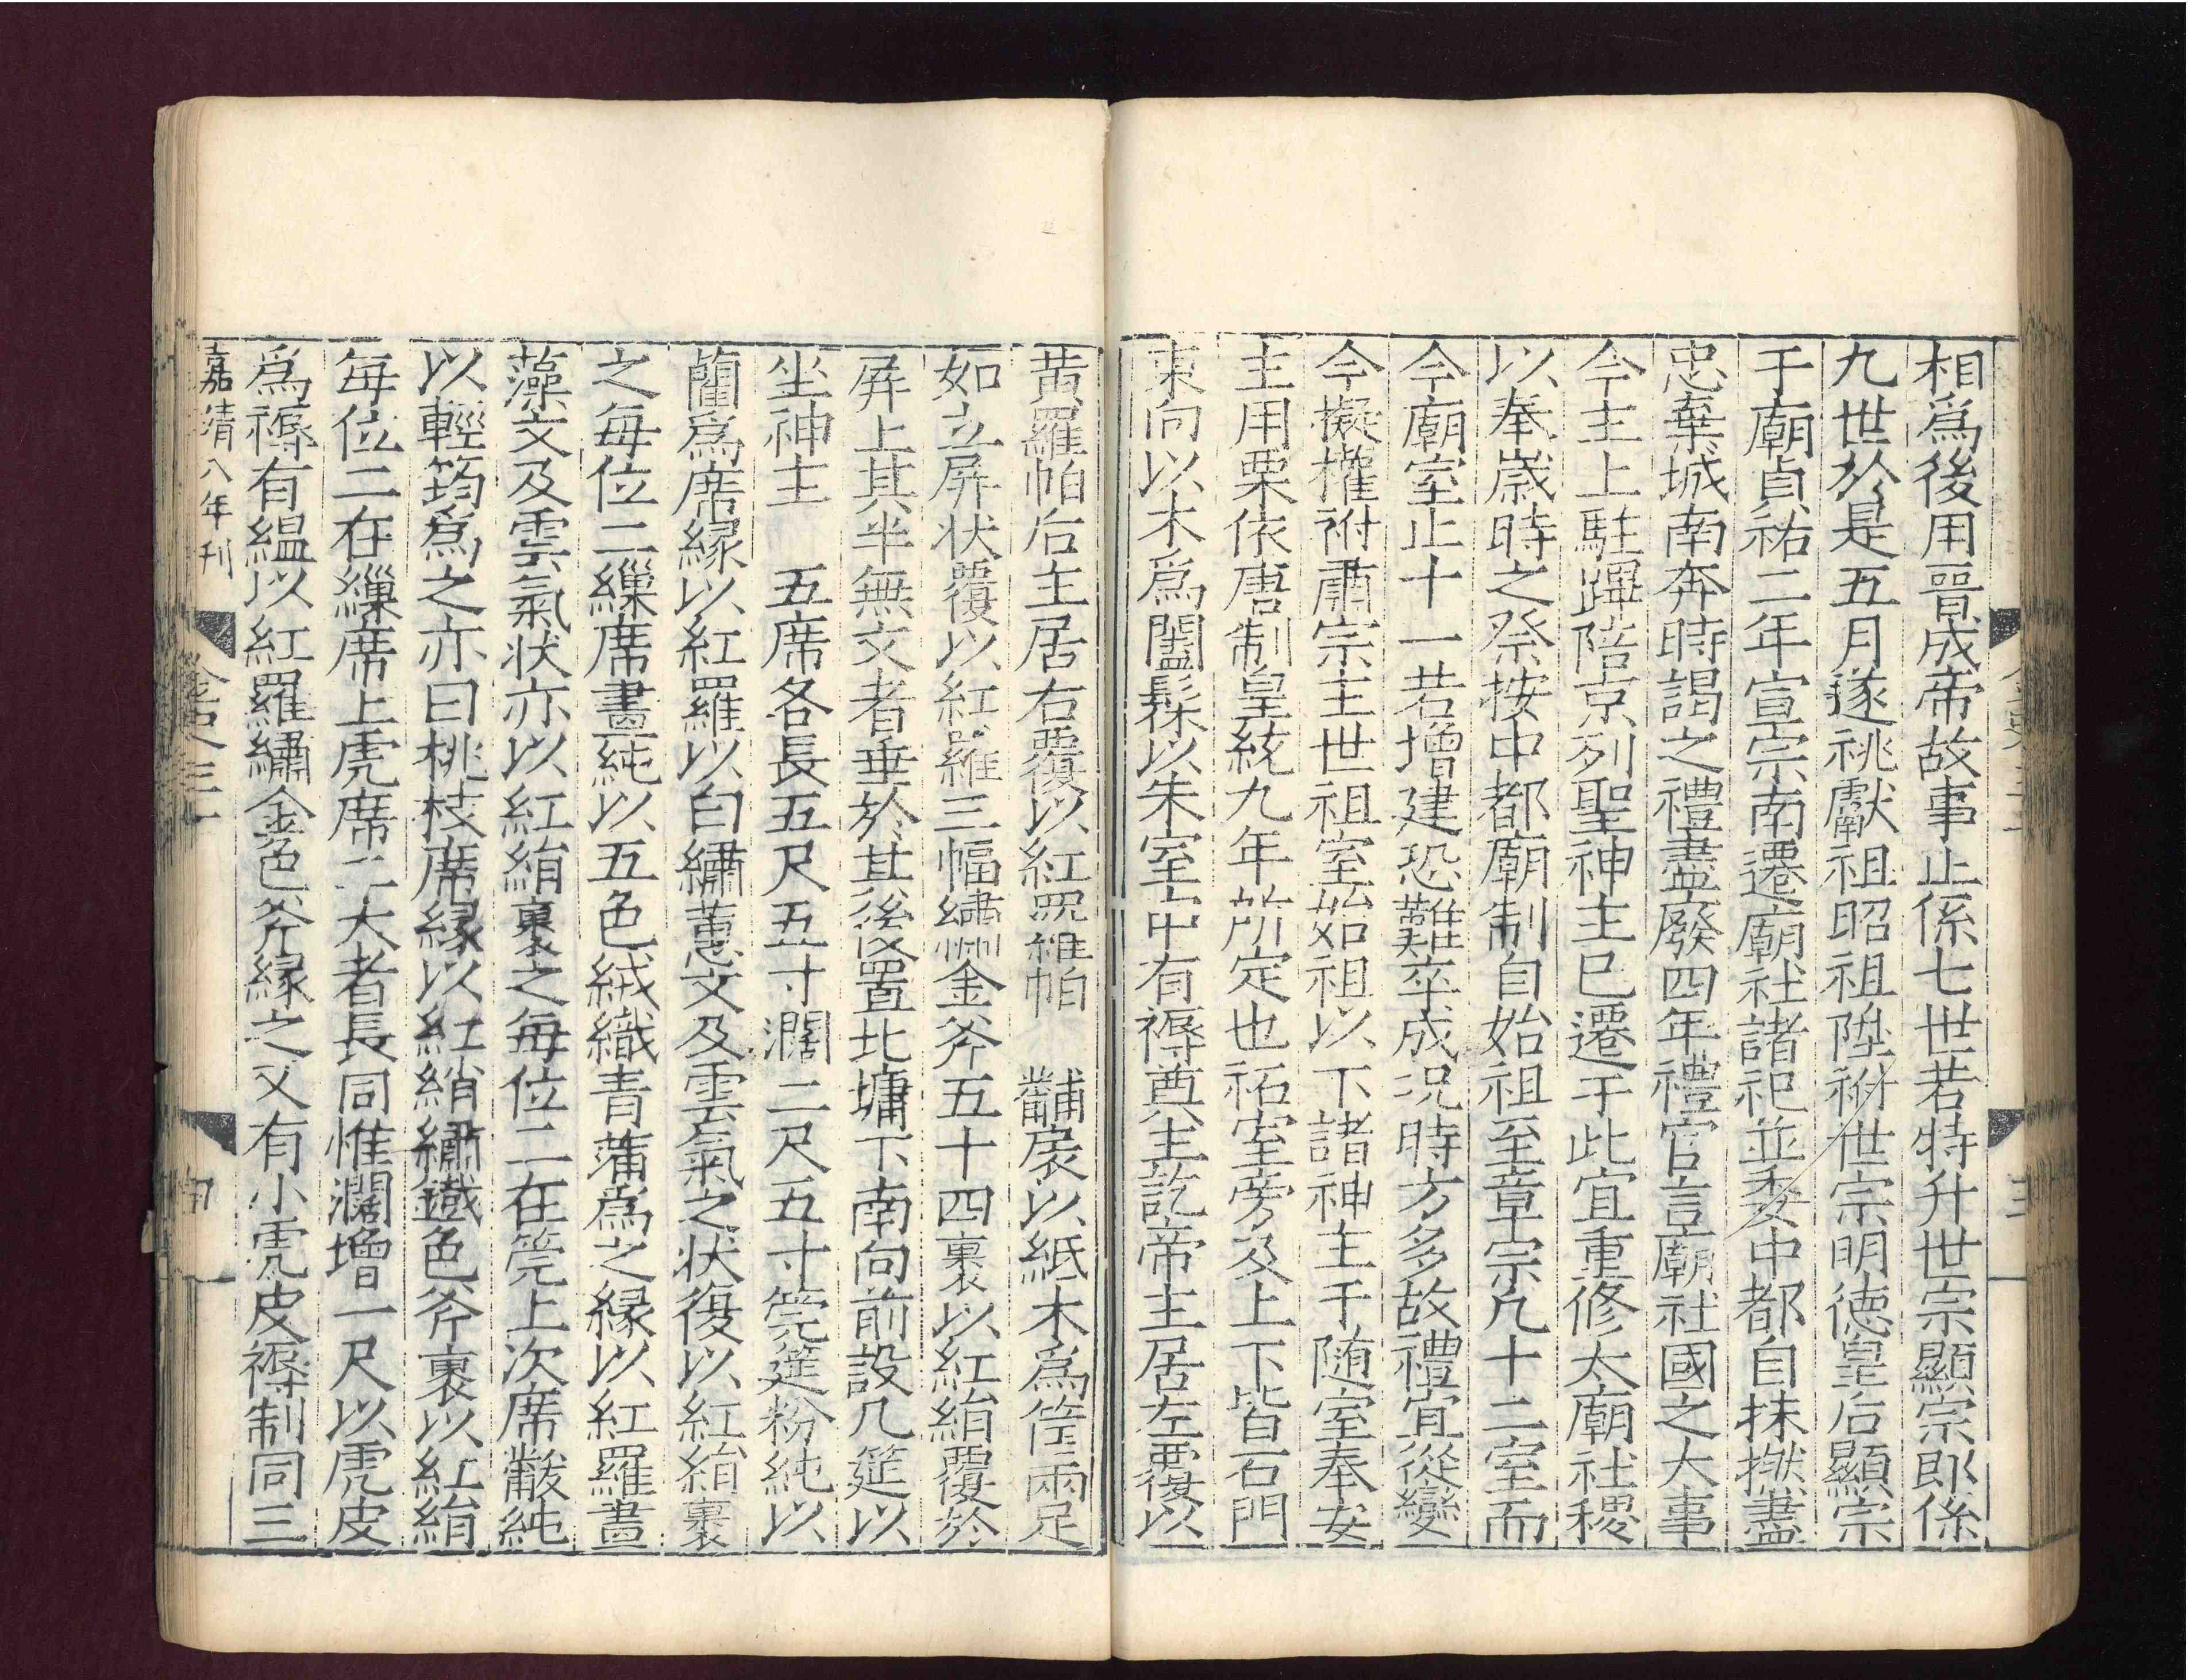 相爲後用晉成帝故事止係七世若特升世宗顯宗即係
九世於是五月遂祧獻祖昭祖陞祔世宗明德皇后顯宗
于廟貞祐二年宣宗南遷廟社諸祀並委中都自抹撚盡
忠棄城南奔時謁之禮盡廢四年禮官言廟社國之大事
今主上駐蹕陪京列聖神主已遷于此宜重修太廟社稷
以奉嵗時之祭按中都廟制自始祖至章宗凡十二室而
今廟室止十一若增建恐難卒成况時方多故禮宜從變
今擬權祔肅宗主世祖室始祖以下諸神主于随室奉安
主用栗依唐制皇統九年所定也祏室旁及上下皆石門
東向以木爲闔髹以朱室中有褥奠主訖帝主居左覆以
黄羅帕后主居右覆以紅羅帕　黼扆以紙木爲筐兩足
如立屏状覆以紅羅三幅繡金斧五十四裏以紅絹覆於
屏上其半無文者垂於其後置北墉下南向前設几筵以
坐神主　五席各長五尺五寸濶二尺五寸筦筵粉純以
藺爲席縁以紅羅以白繡蕙文及雲氣之状復以紅絹裏
之每位二繅席畫純以五色絨織青蒲爲之縁以紅羅畫
藻文及雲氣状亦以紅絹裏之每位二在筦上次席黻純
以輕筠爲之亦曰桃枝席縁以紅綃繡鐵色斧裏以紅絹
每位二在繅席上虎席二大者長同惟濶增一尺以虎皮
爲褥有緼以紅羅繡金色斧縁之又有小虎皮褥制同三
嘉靖八年刊